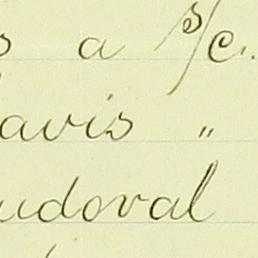 s a s/c.
avis "
udoval